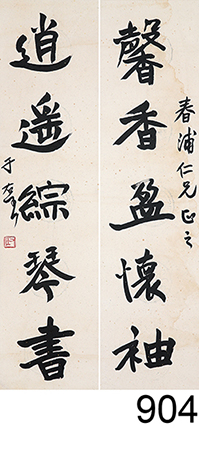 春浦仁兄正之
馨香盈懷袖
逍遥綜琴書
于右任
904